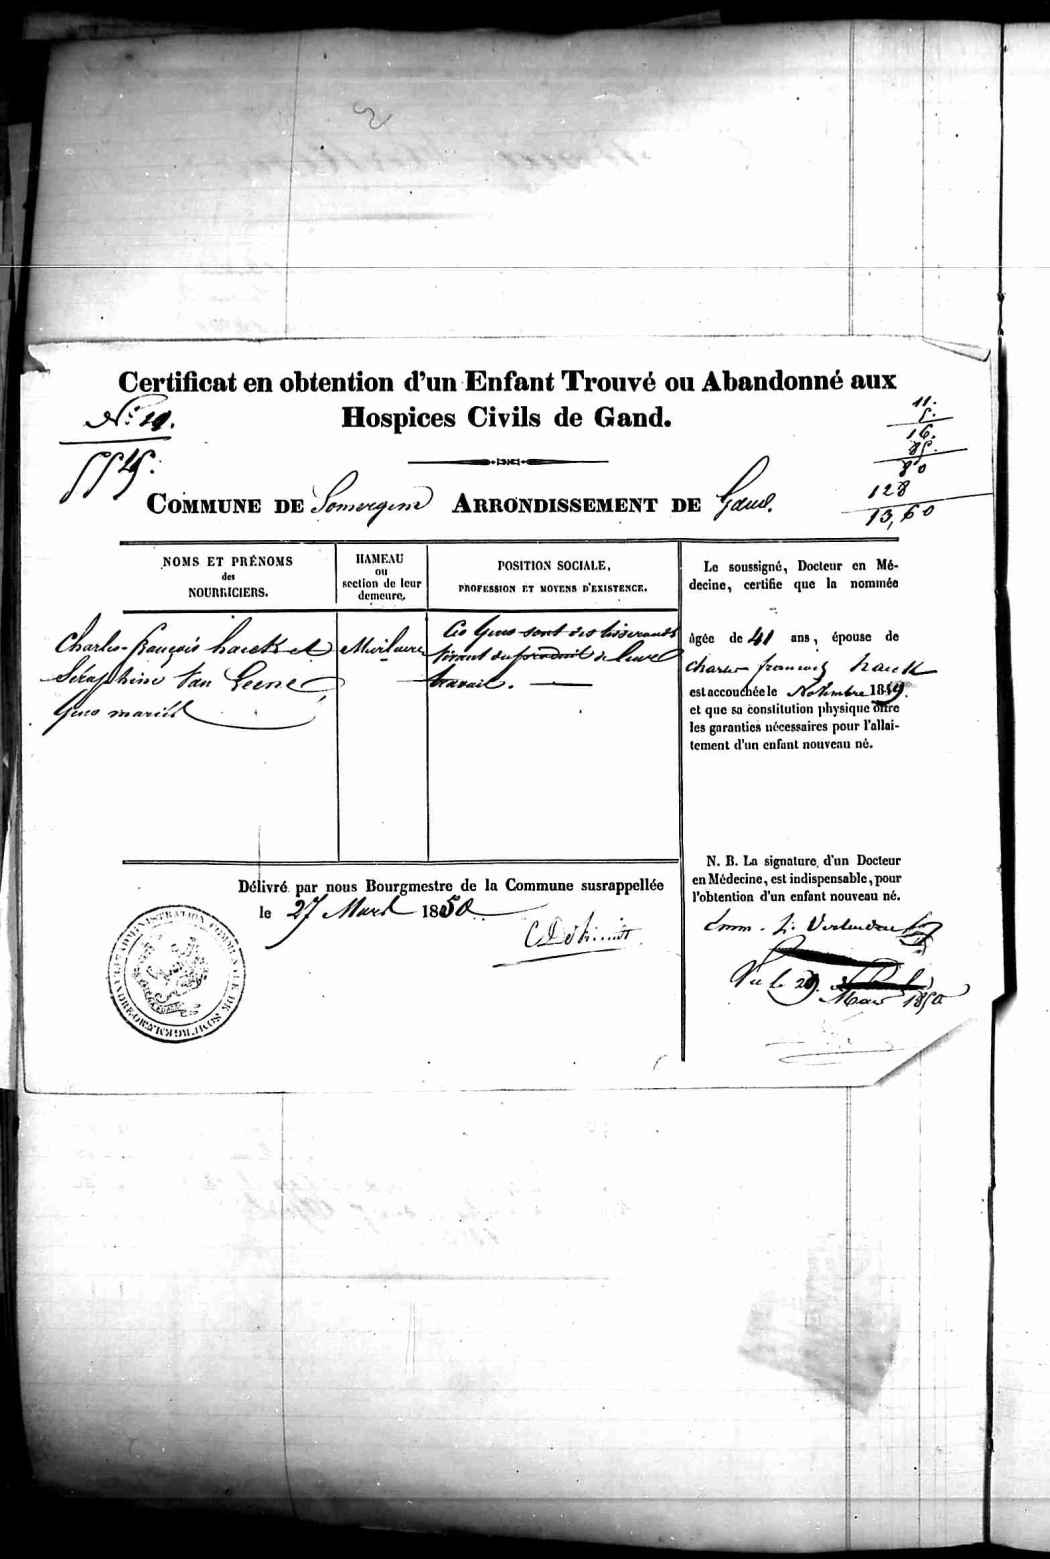 Certificat en obtention d'un Enfant Trouvé ou Abandonné aux
Hospices Civils de Gand.
COMMUNE DE Somergem ARRONDISSEMENT DE Gand.
11.
5.
16.
85.
80
128
13,60
NOMS ET PRÉNOMS
des
NOURRICIERS.
Charles-françois haeck et
Séraphine Van
Gens mariés
HAMEAU
ou
section de leur
demeure.
POSITION SOCIALE,
PROFESSION ET MOYENS D'EXISTENCE.
Ces Gens sont des tisserands
vivant du produit de leur
travail.
Le soussigné, Docteur en Mé-
decine, certifie que la nommée
âgée de 41 ans, épouse de
charles francois haeck
est accouchée le Novembre 1849.
et que sa constitution physique offre
les garanties nécessaires pour l'allai-
tement d'un enfant nouveau né.
N. B. La signature d'un Docteur
en Médecine, est indispensable, pour
l'obtention d'un enfant nouveau né.
Vu le 29.
Mars 1850
Délivré par nous Bourgmestre de la Commune susrappellée
le 27 Mars 1850.
ADMINISTRATION COMMUNALE DE SOMERGEM